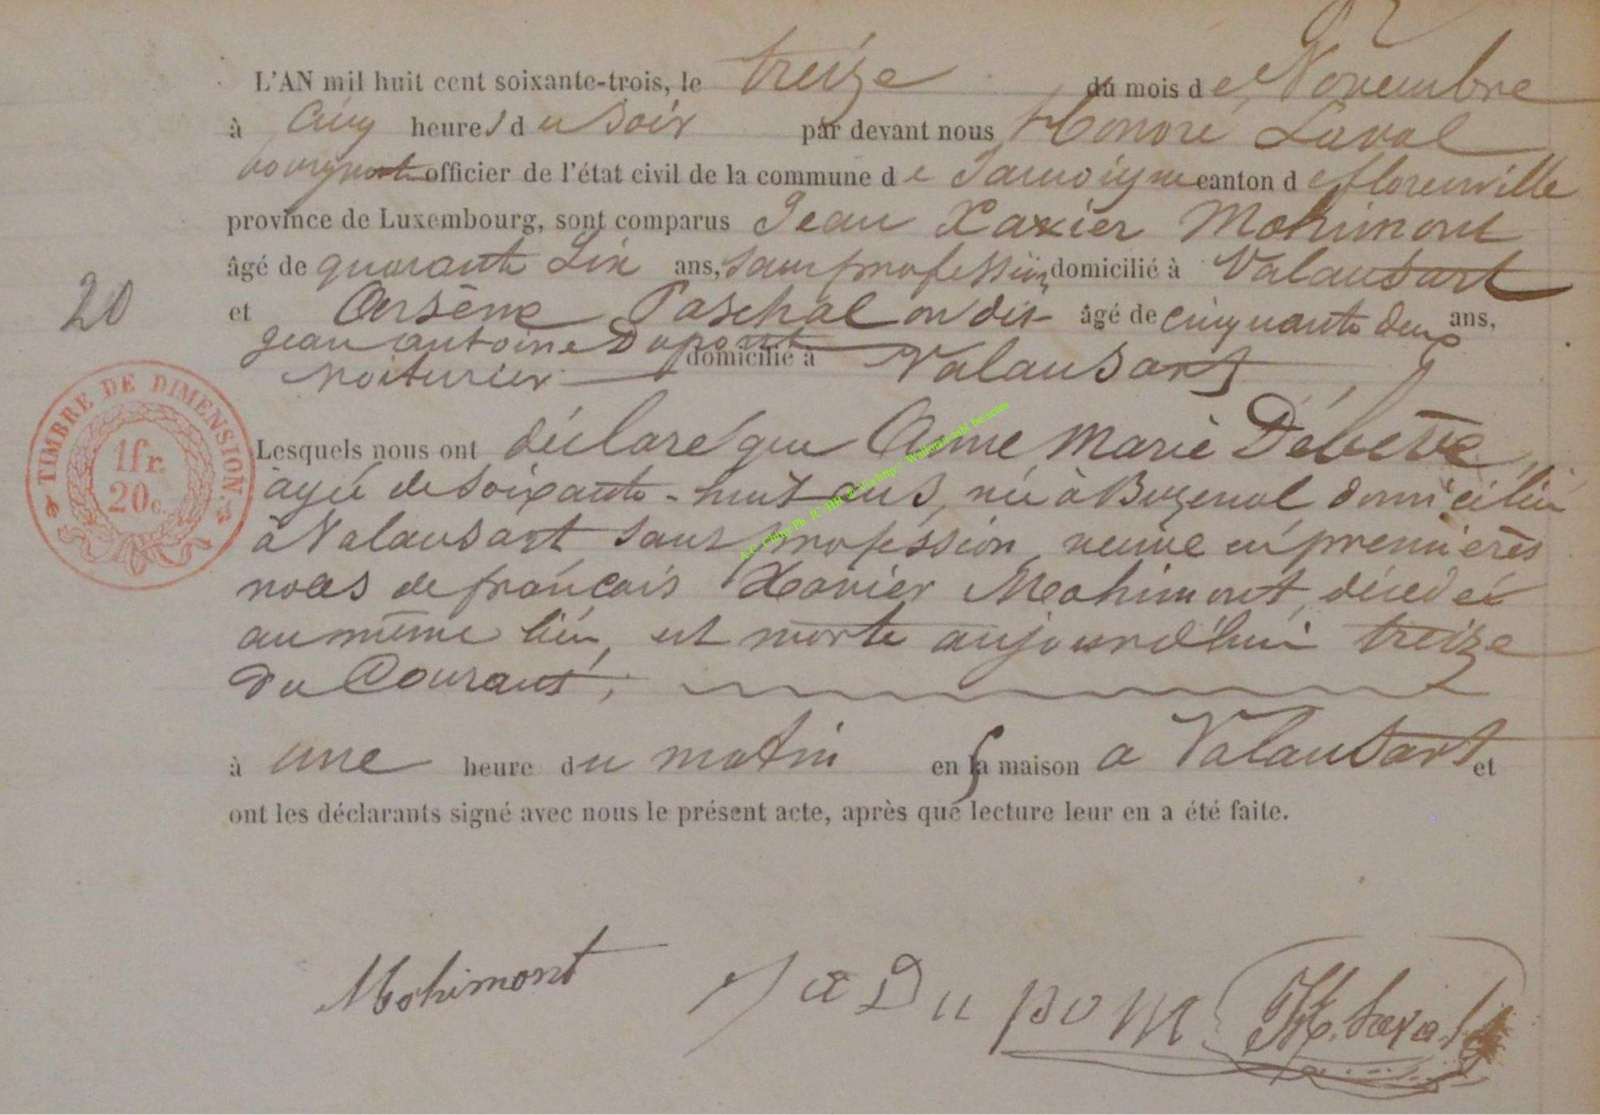 L'AN mil huit cent soixante-trois, le treize du mois de Novembre
à cinq heures du soir par devant nous Honoré Laval
bourgmestre officier de l'état civil de la commune de Jamoigne canton de florenville
province de Luxembourg, sont comparus Jean Xavier Mohimont
âgé de quarante six ans, sans profession domicilié à Valansart
20
et Arsène Paschal ou dit âgé de cinquante deux ans,
Jean antoine Dupont
voiturier domicilié à Valansart
TIMBRE DE DIMENSION.
1 fr.
20c.
Lesquels nous ont déclaré que Anne Marie Débette,
agée de soixante-huit ans, née à Buzenol domiciliée
à Valansart sans profession, veuve en premières
noces de françois Xavier Mohimont, décédé
au même lieu, est morte aujourd'hui treize
du Courant,
à une heure du matin en sa maison a Valansart et
ont les déclarants signé avec nous le présent acte, après que lecture leur en a été faite.
Mohimont J a Dupont H. Laval